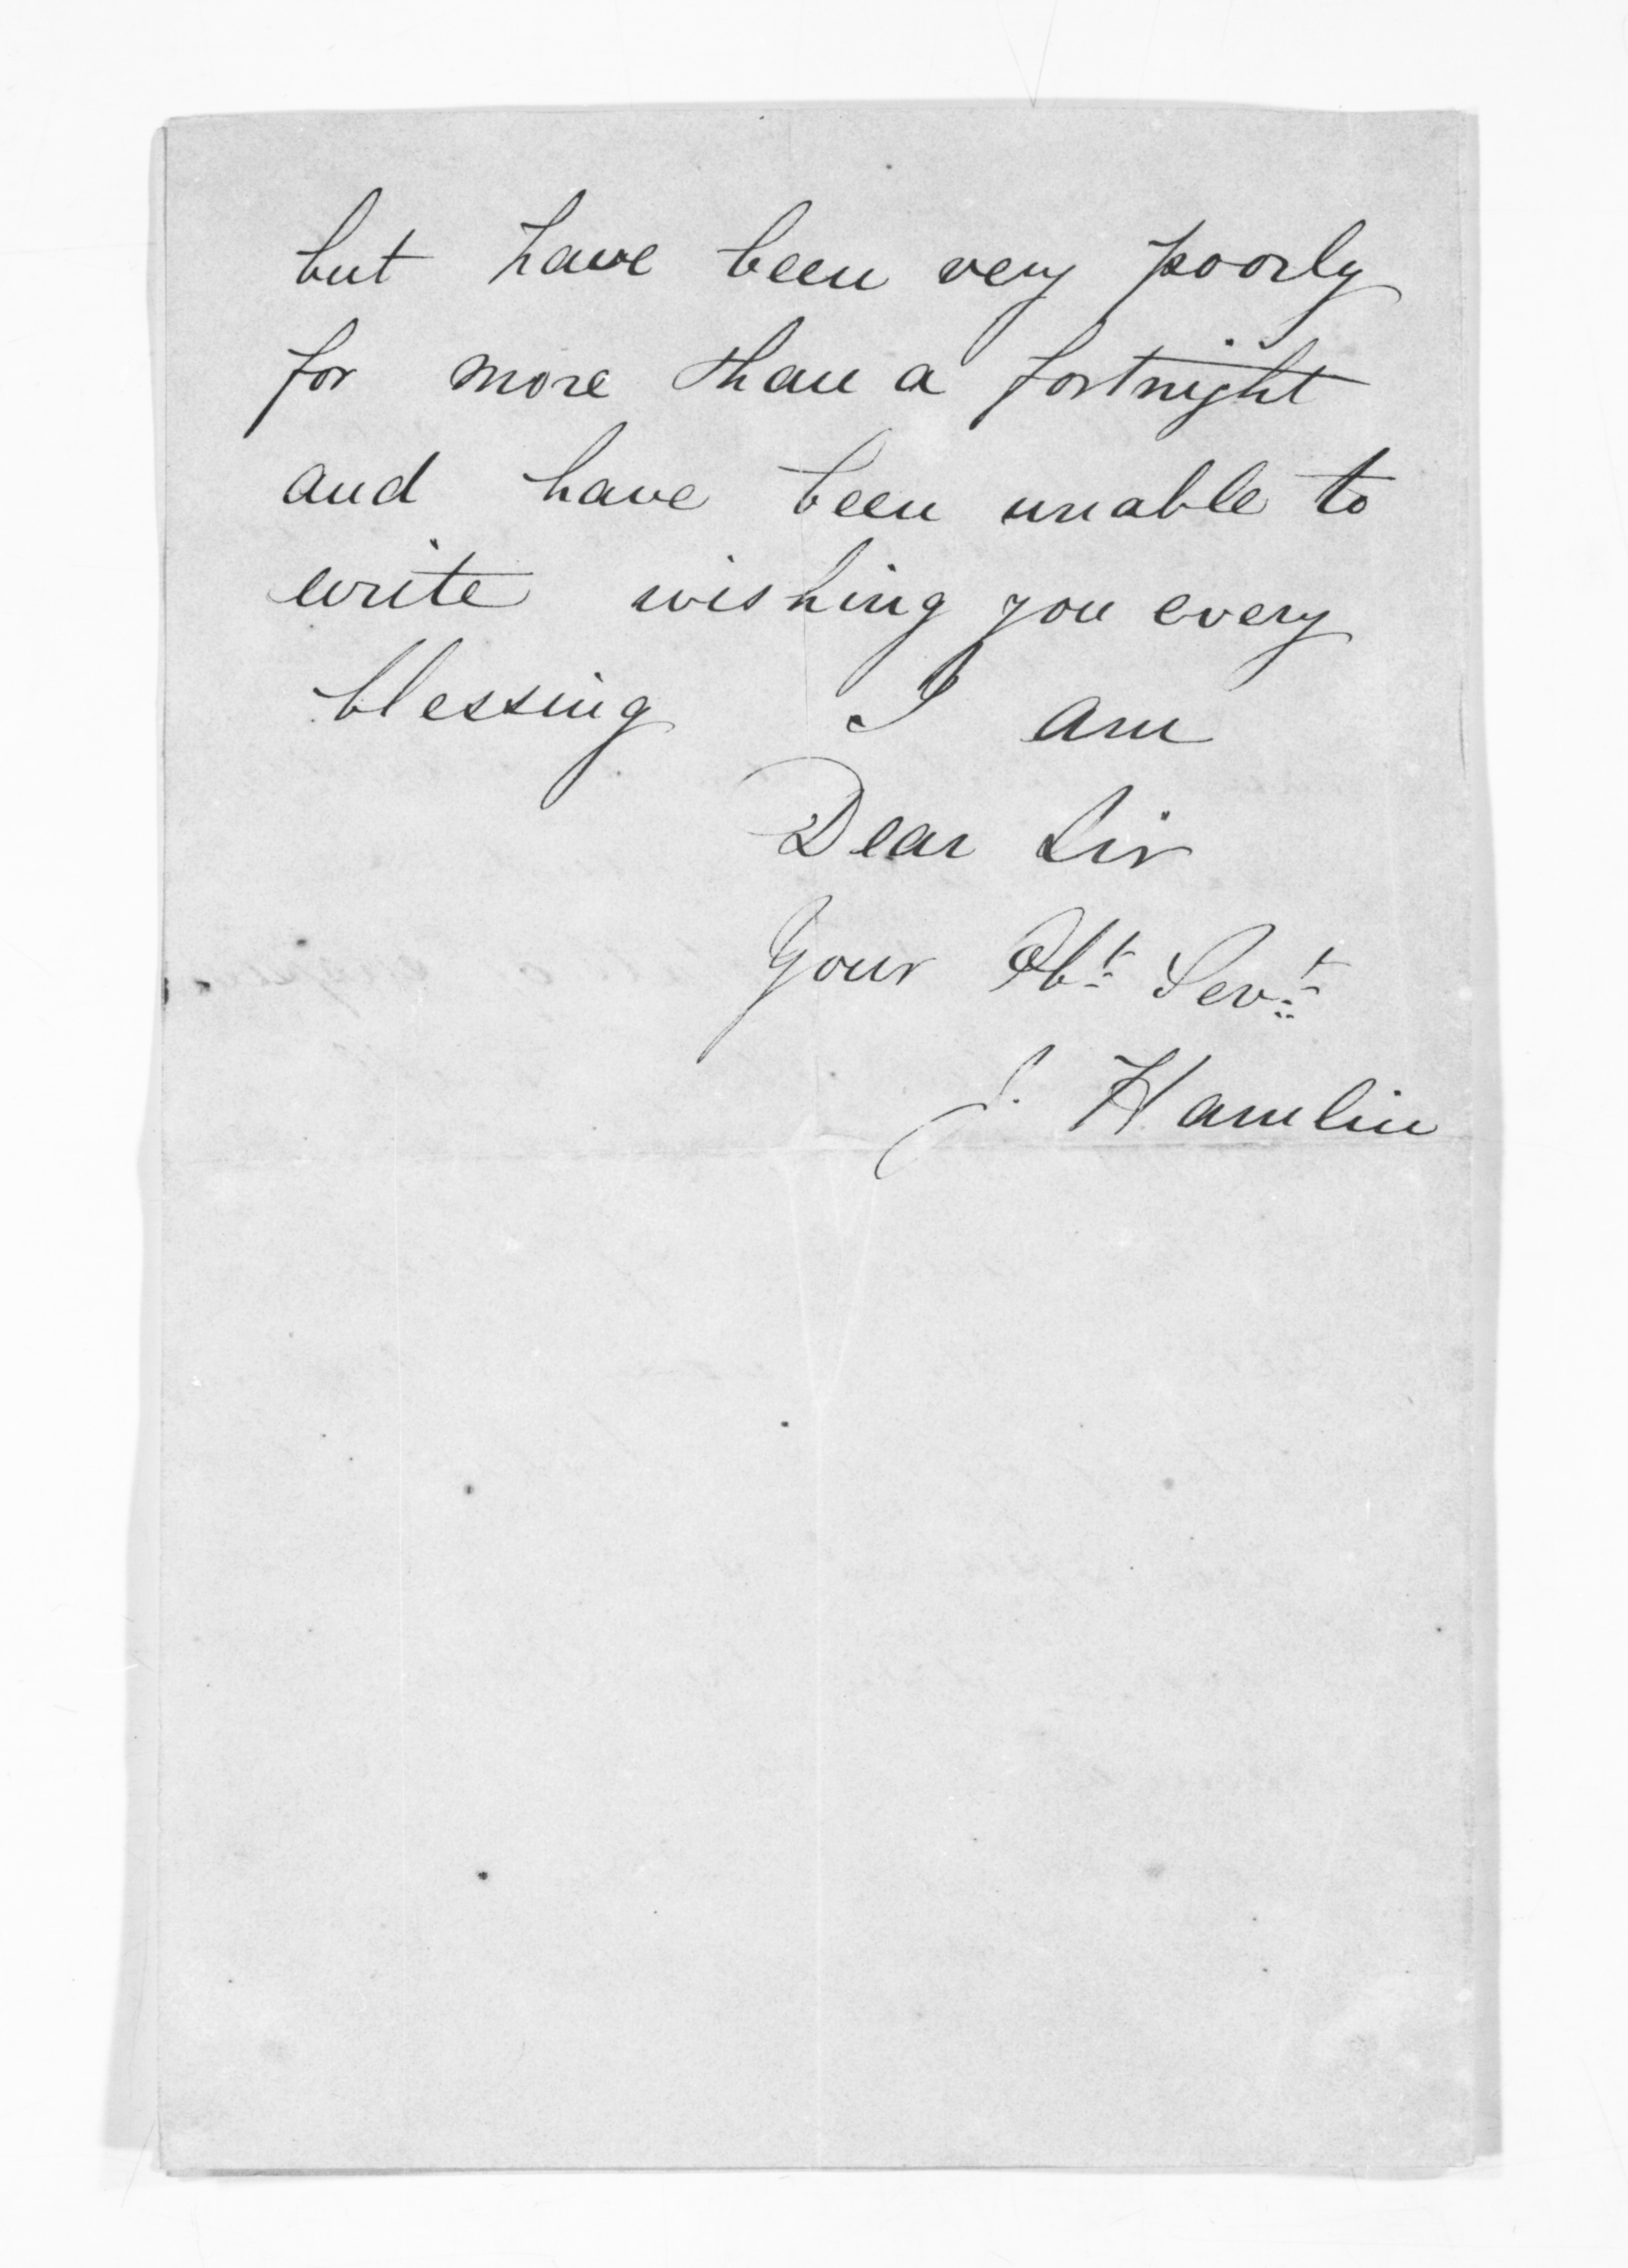 but have been very poorly
for more than a fortnight
and have been unable to
write wishing you every
blessing I am
Dear Sir
Your Obt Servt
J. Hamlin